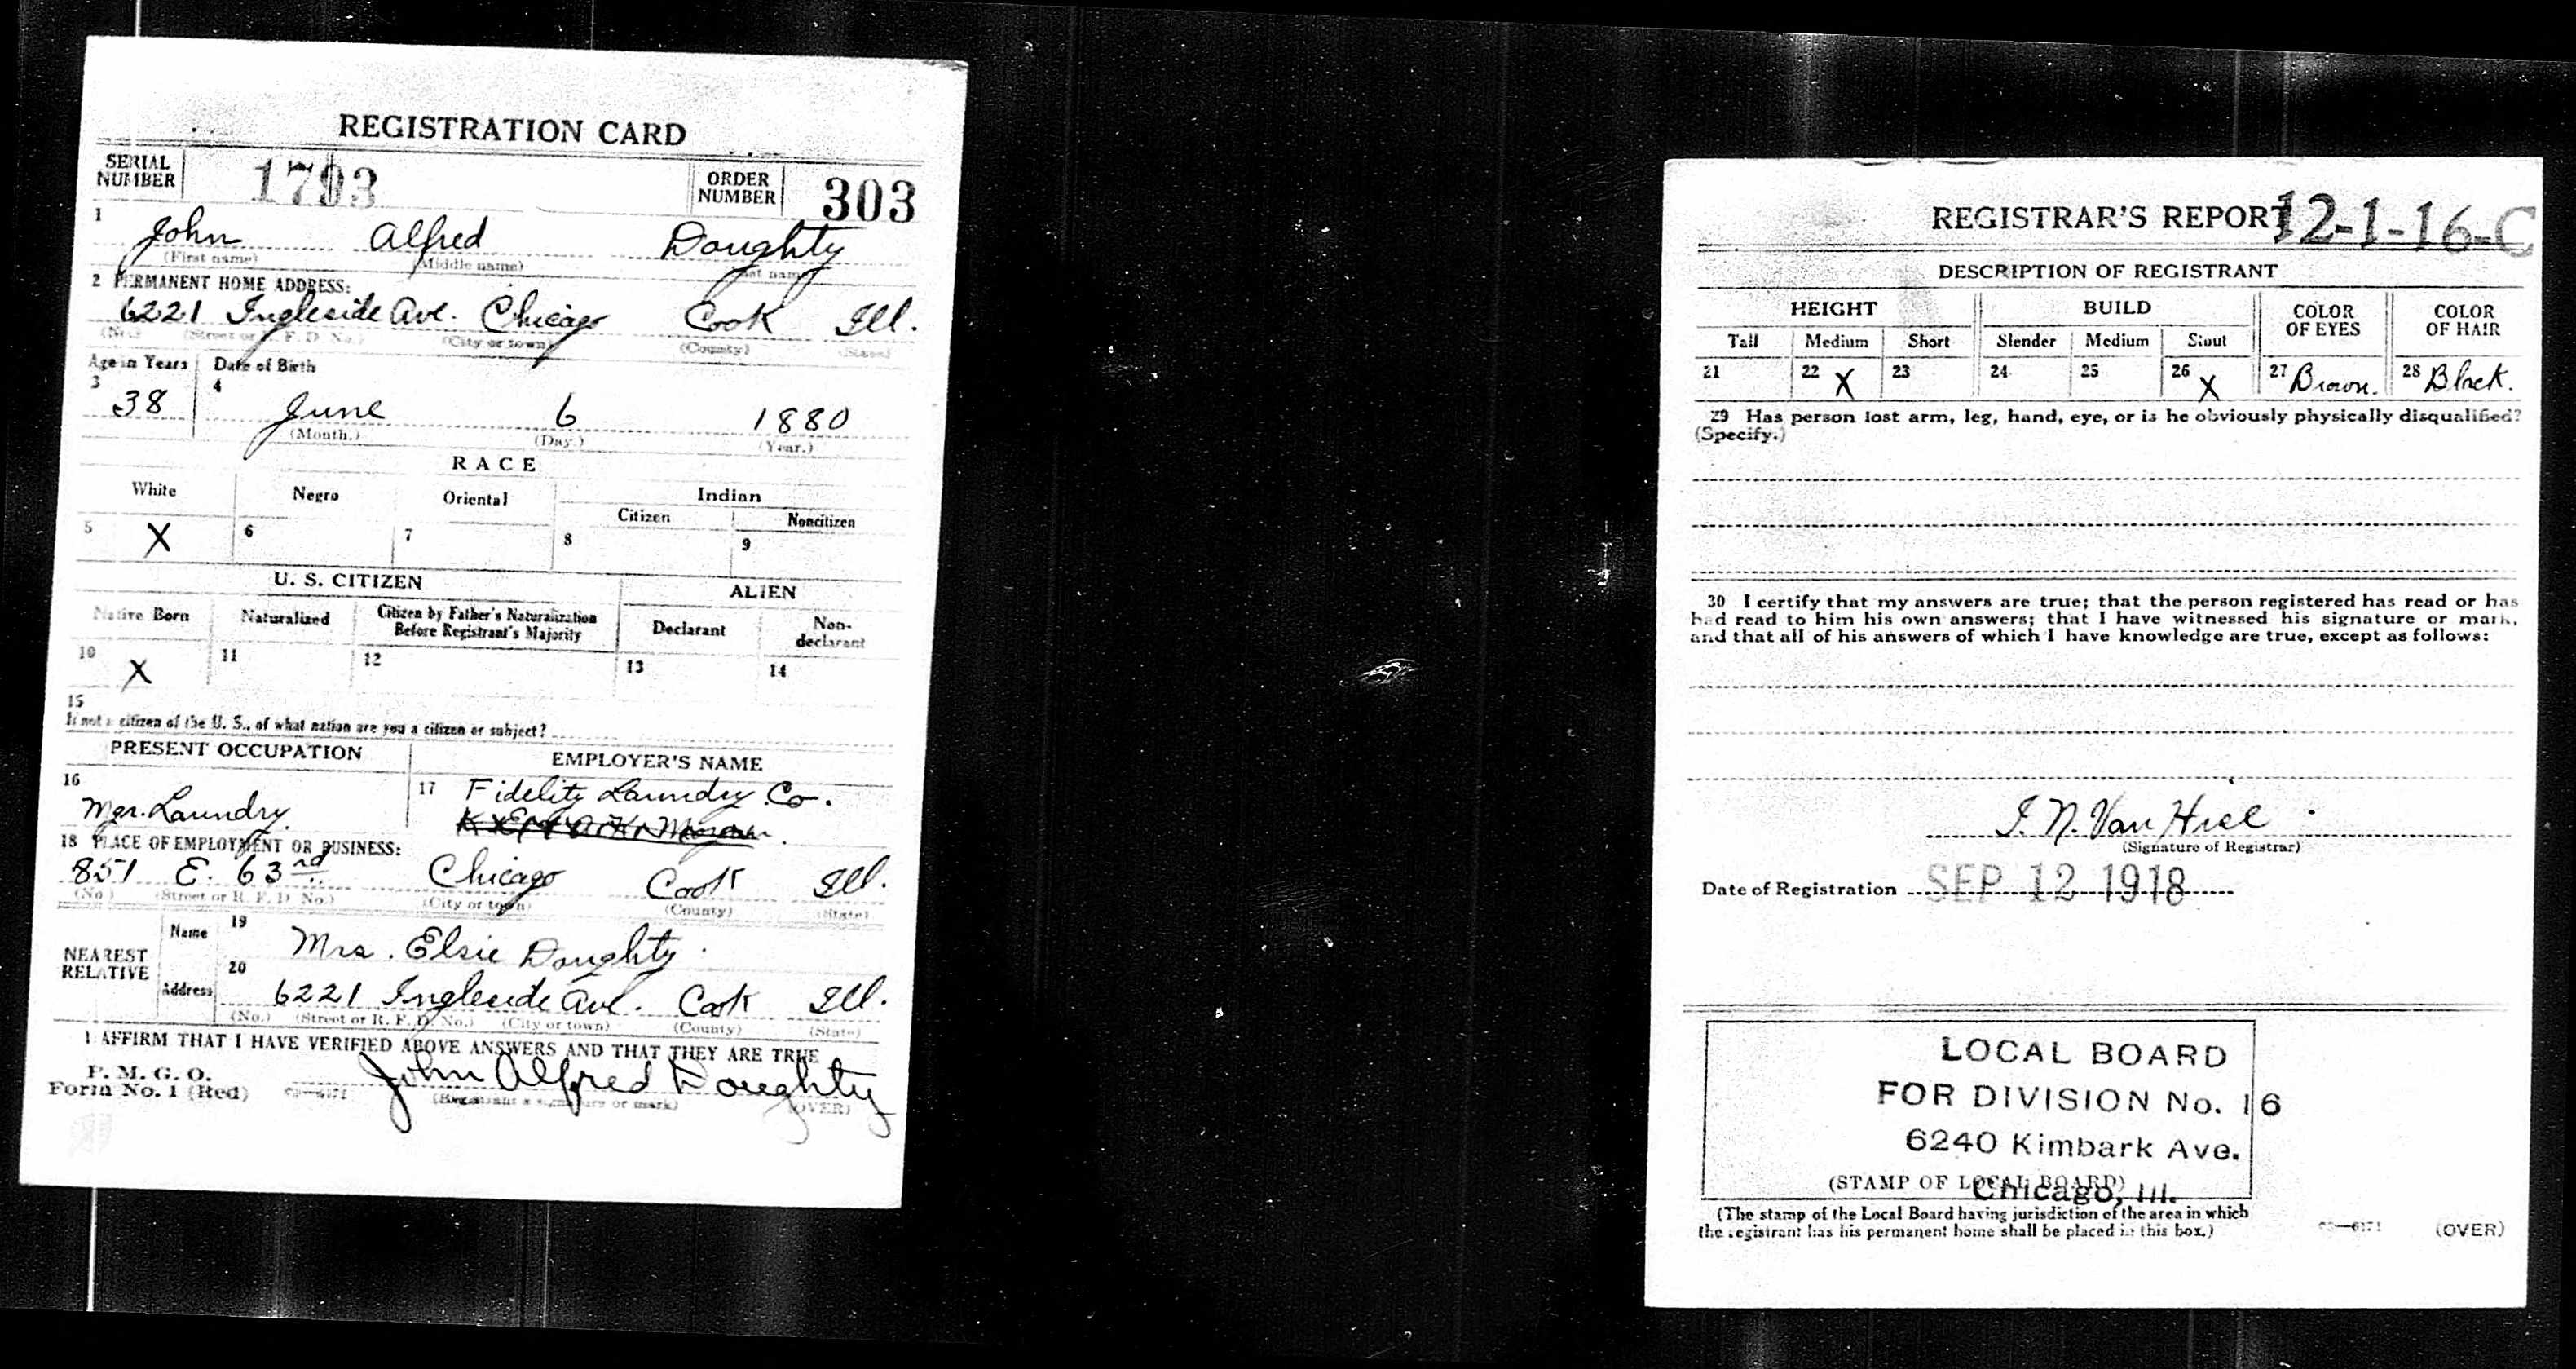 REGISTRATION CARD
SERIAL NUMBER 1793 ORDER NUMBER 303
1 John Alfred Doughty
(First name) (Middle name) (Last name)
2 PERMANENT HOME ADDRESS:
6221 Ingleside Ave. Chicago Cook Ill.
(No.) (Street or R. F. D. No.) (City or town) (County) (State)
Age in Years Date of Birth
3 38 4 June 6 1880
(Month.) (Day.) (Year.)
RACE
White Negro Oriental Indian
Citizen Noncitizen
5 X 6 7 8 9
U. S. CITIZEN ALIEN
Native Born Naturalized Citizen by Father's Naturalization Before Registrant's Majority Declarant Non-declarant
10 X 11 12 13 14
15
If not a citizen of the U. S., of what nation are you a citizen or subject?
PRESENT OCCUPATION EMPLOYER'S NAME
16 Mgr. Laundry 17 Fidelity Laundry Co.
18 PLACE OF EMPLOYMENT OR BUSINESS:
851 E. 63rd Chicago Cook Ill.
(No.) (Street or R. F. D. No.) (City or town) (County) (State)
NEAREST RELATIVE Name 19 Mrs. Elsie Doughty
Address 20 6221 Ingleside Ave. Cook Ill.
(No.) (Street or R. F. D. No.) (City or town) (County) (State)
I AFFIRM THAT I HAVE VERIFIED ABOVE ANSWERS AND THAT THEY ARE TRUE
P. M. G. O.
Form No. 1 (Red) 03—6171 John Alfred Doughty
(Registrant's signature or mark) (OVER)
REGISTRAR'S REPORT 12-1-16-C
DESCRIPTION OF REGISTRANT
HEIGHT BUILD COLOR OF EYES COLOR OF HAIR
Tall Medium Short Slender Medium Stout
21 22 X 23 24 25 26 X 27 Brown. 28 Black.
29 Has person lost arm, leg, hand, eye, or is he obviously physically disqualified?
(Specify.)
30 I certify that my answers are true; that the person registered has read or has
had read to him his own answers; that I have witnessed his signature or mark,
and that all of his answers of which I have knowledge are true, except as follows:
I. N. Van Hise
(Signature of Registrar)
Date of Registration SEP 12 1918
LOCAL BOARD
FOR DIVISION No. 16
6240 Kimbark Ave.
(STAMP OF LOCAL BOARD)
Chicago, Ill.
(The stamp of the Local Board having jurisdiction of the area in which
the registrant has his permanent home shall be placed in this box.)
03—6171 (OVER)